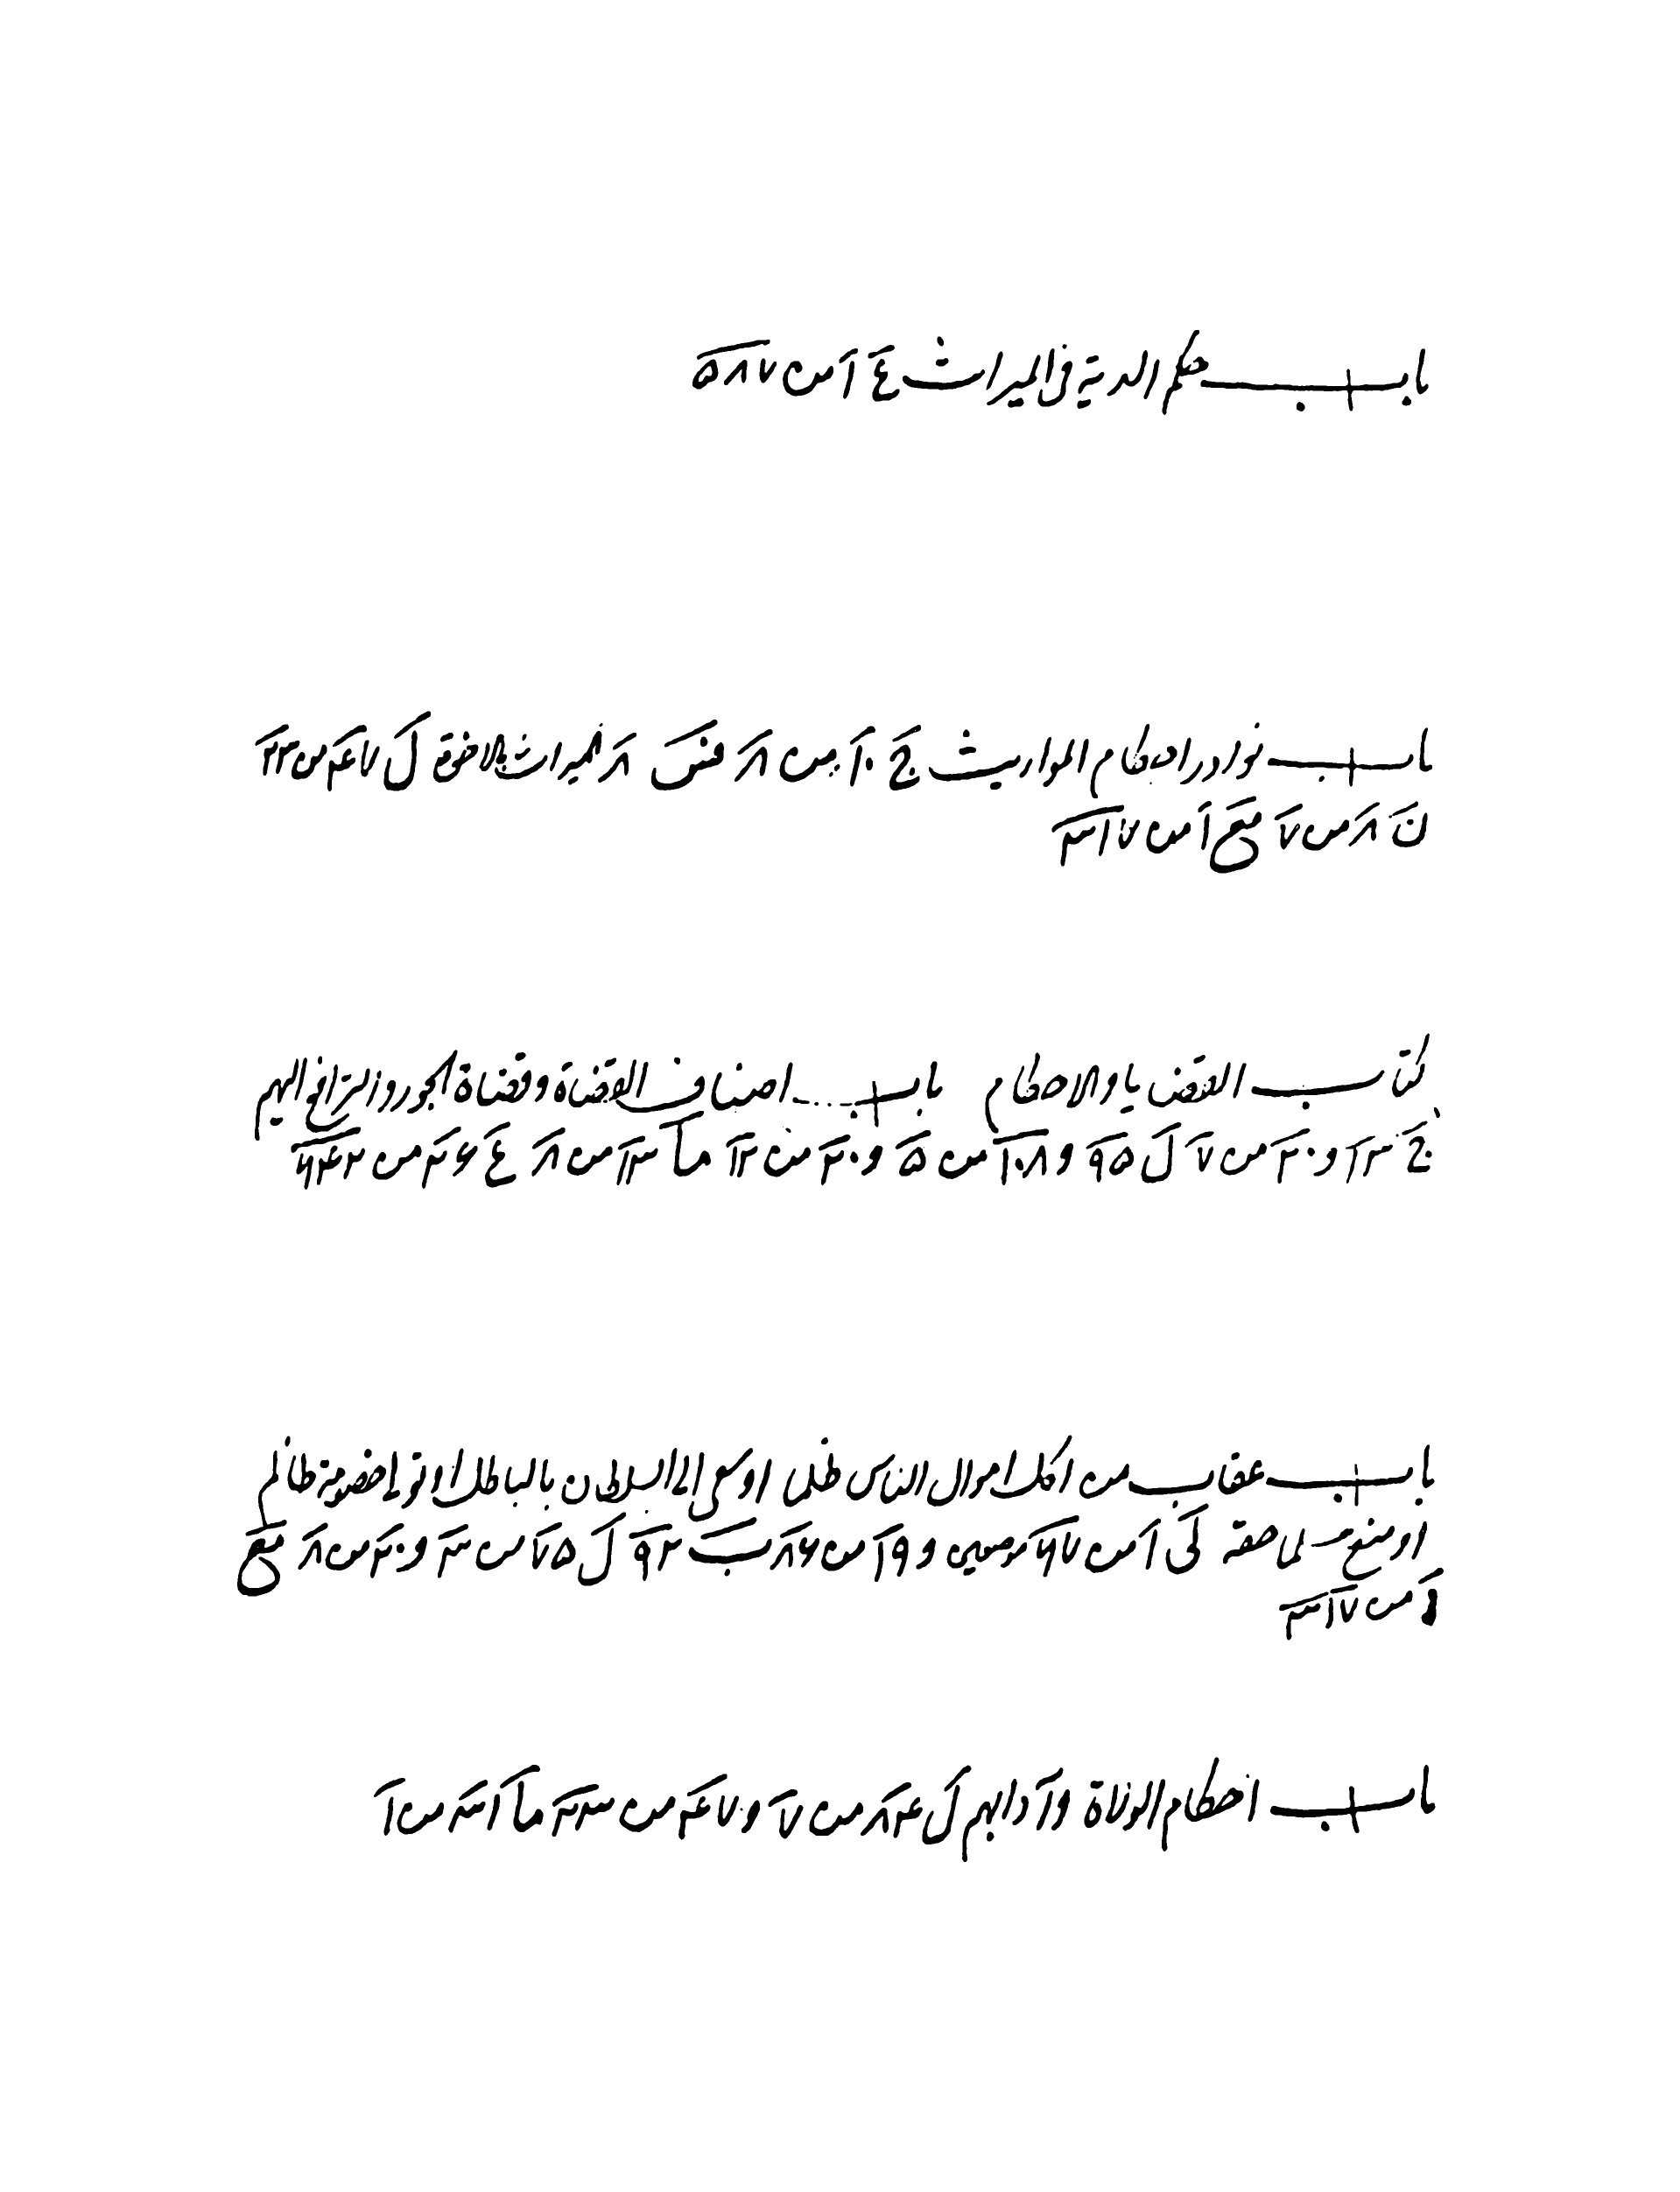 باب حكم الدية في الميراث ع ١ من ٥٨٧
باب نوادر احكام المواريث ج ١٠ من ٨ فنق ٨ الميراث بالاخوة ل ٧ من
ن ٨ من ٧ مع ١ من ٣١٧
كتاب القضايا والاحكام باب اصناف القضاة وقضاة الجور والترافع اليهم
ج ١٣ و ٢٠ من ٧ ل ٩٥ و ١٠٨ من ٥ و ٢٠ من ١٢ ما ١٣ من ٨ ع ٢٦ من ٦٤٢
باب عقاب من اكل اموال الناس ظلما او سعى الى السلطان بالباطل او تولى خصومة ظالم
او منع مسلما حقه كى ١ من ٦٧ موضعين و ١٩ من ٨٦ ب ٩٢ ل ٧٥ من ٣ و ٢٠ من ٨ مع
١ من ٣١٧
باب احكام الولاة وآدابهم ل ٨٤ من ٧ و ٤٧ من ما من ١